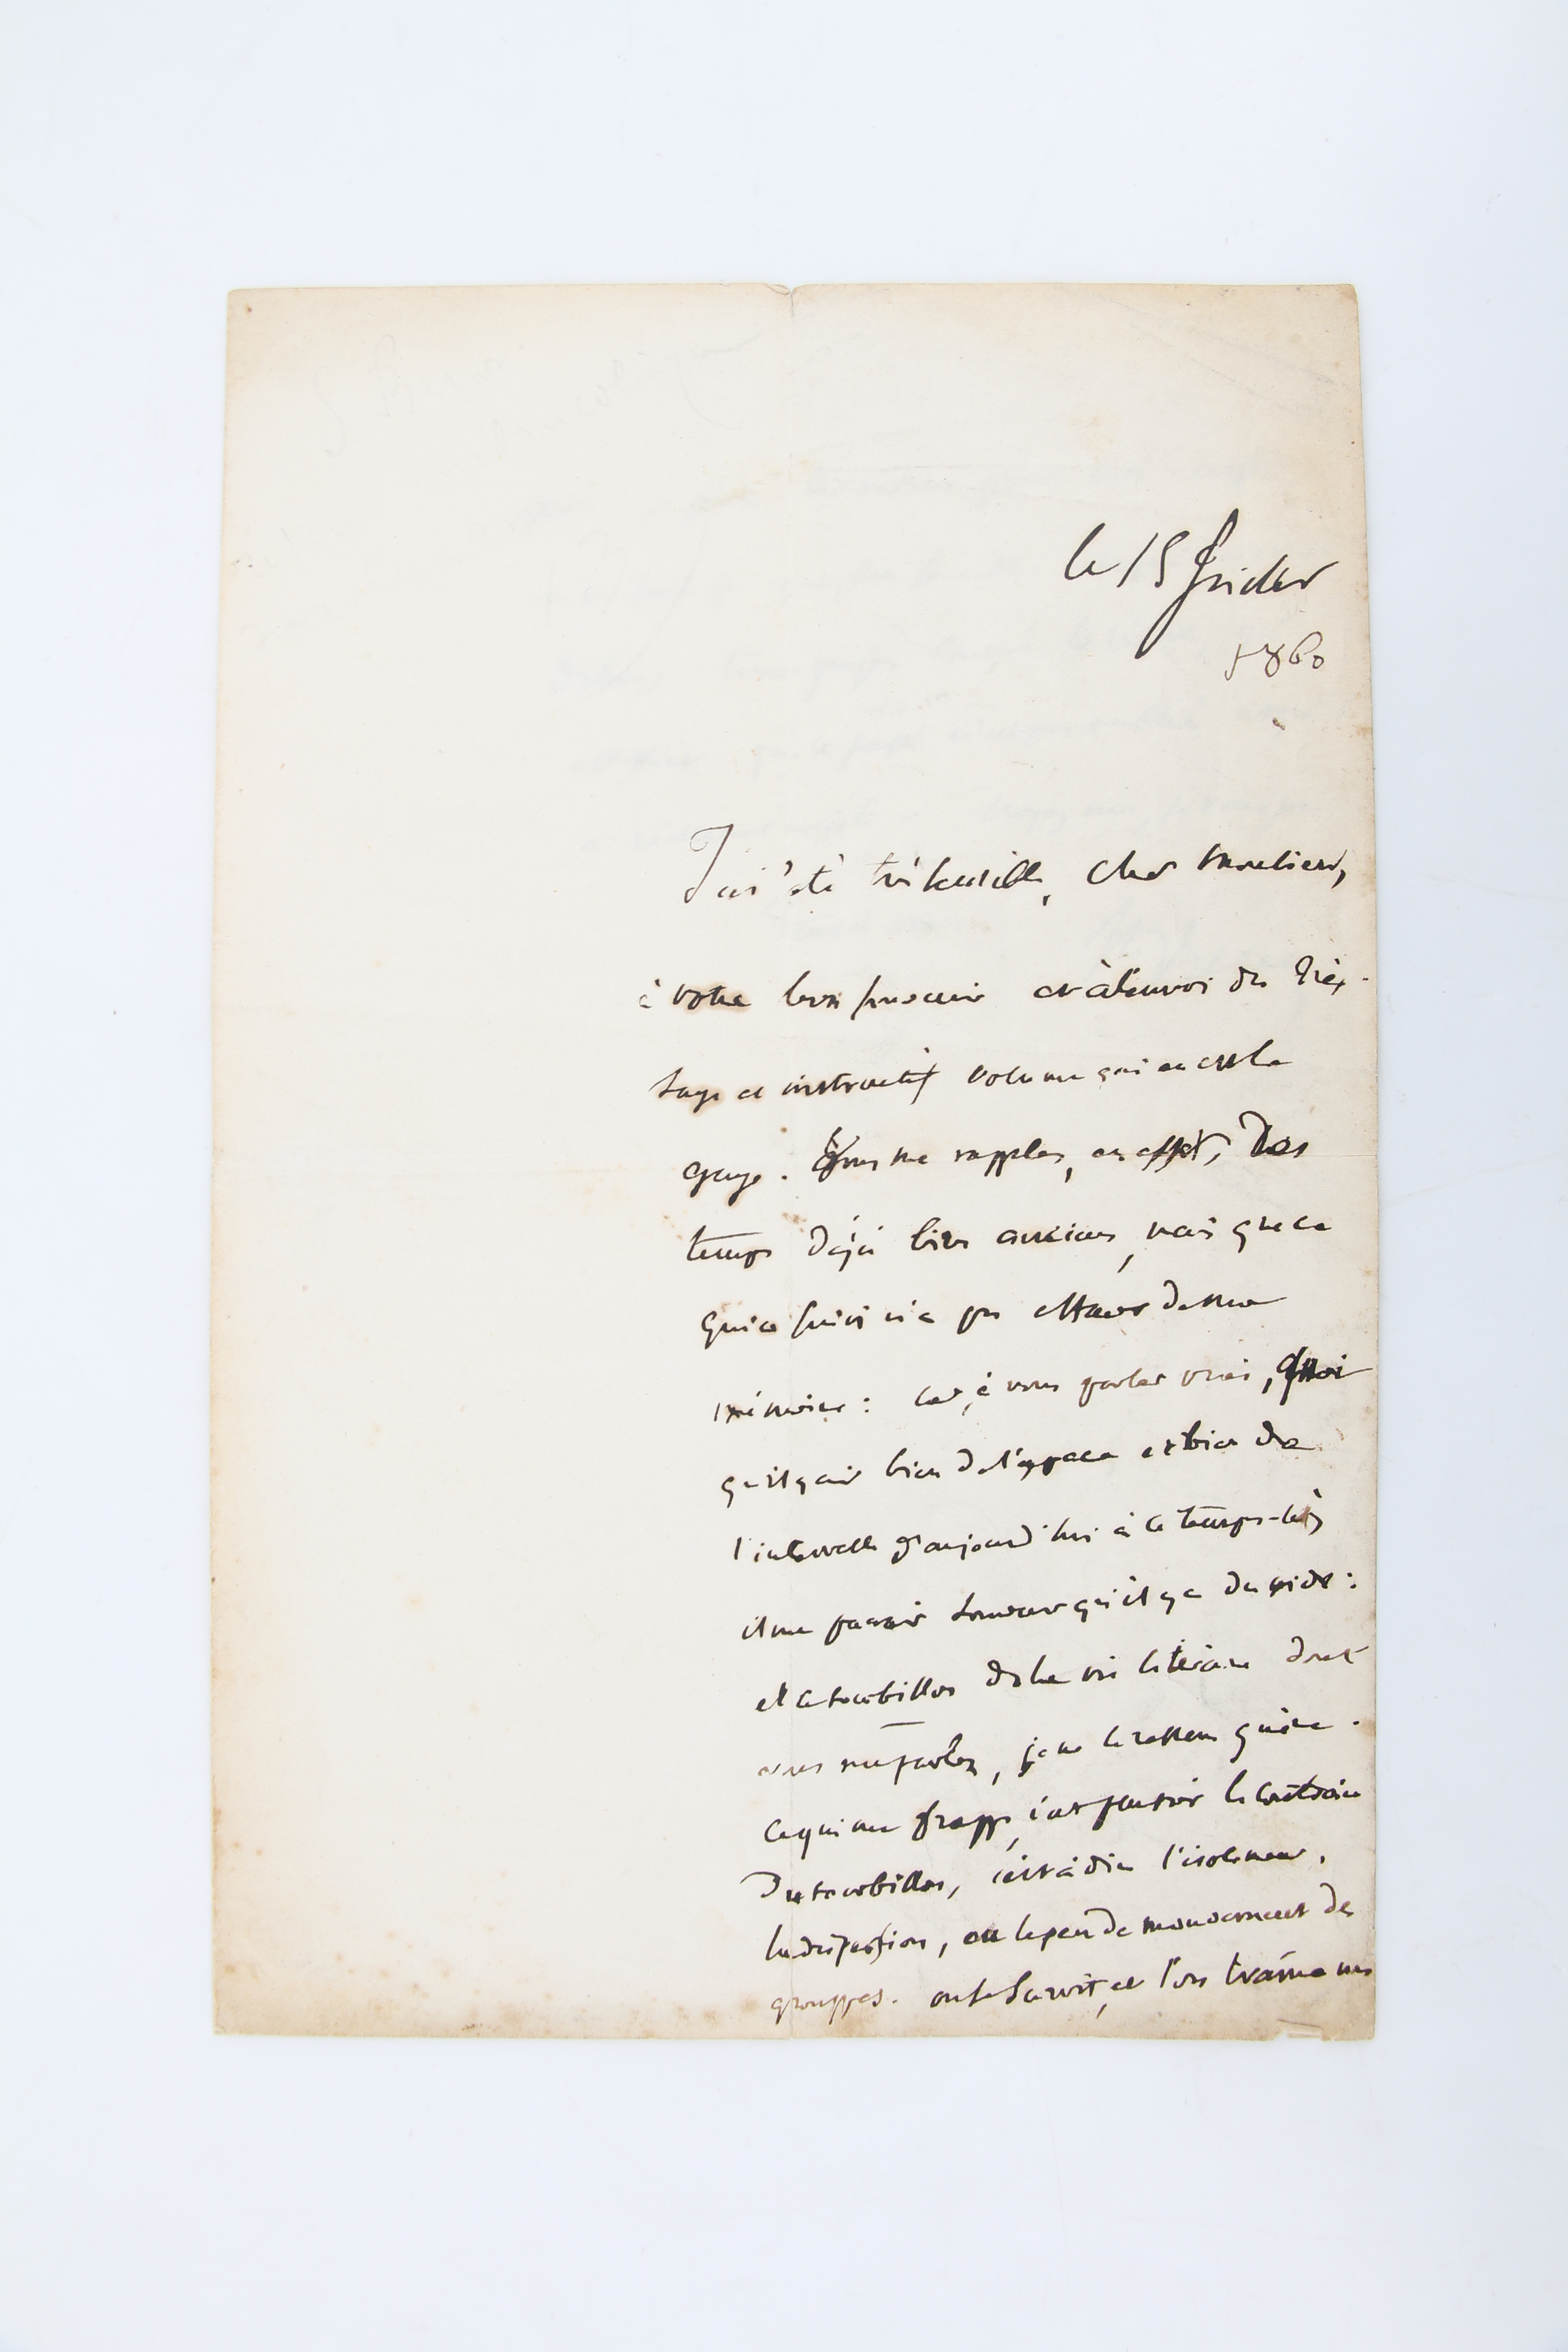 le 15 juillet
1860
J'ai été très sensible, cher Monsieur,
à votre bon souvenir et à l'envoi du très-
sage et instructif volume qui en est le
gage. Vous me rappelez, en effet, des
temps déjà bien anciens, mais que ce
qui a suivi n'a pas effacés de ma
mémoire : car, à vous parler vrai, quoi
qu'il y ait bien de l'espace et bien de
l'intervalle d'aujourd'hui à ce temps-là,
il me paraît souvent qu'il y a du vide :
et ce tourbillon de la vie littéraire dont
vous me parlez, je ne le ressens guère.
Ce qui me frappe, c'est plutôt le contraire
du tourbillon, c'est à dire l'isolement,
la dispersion, ou le peu de mouvement des
grouppes. on se survit, et l'on traîne un